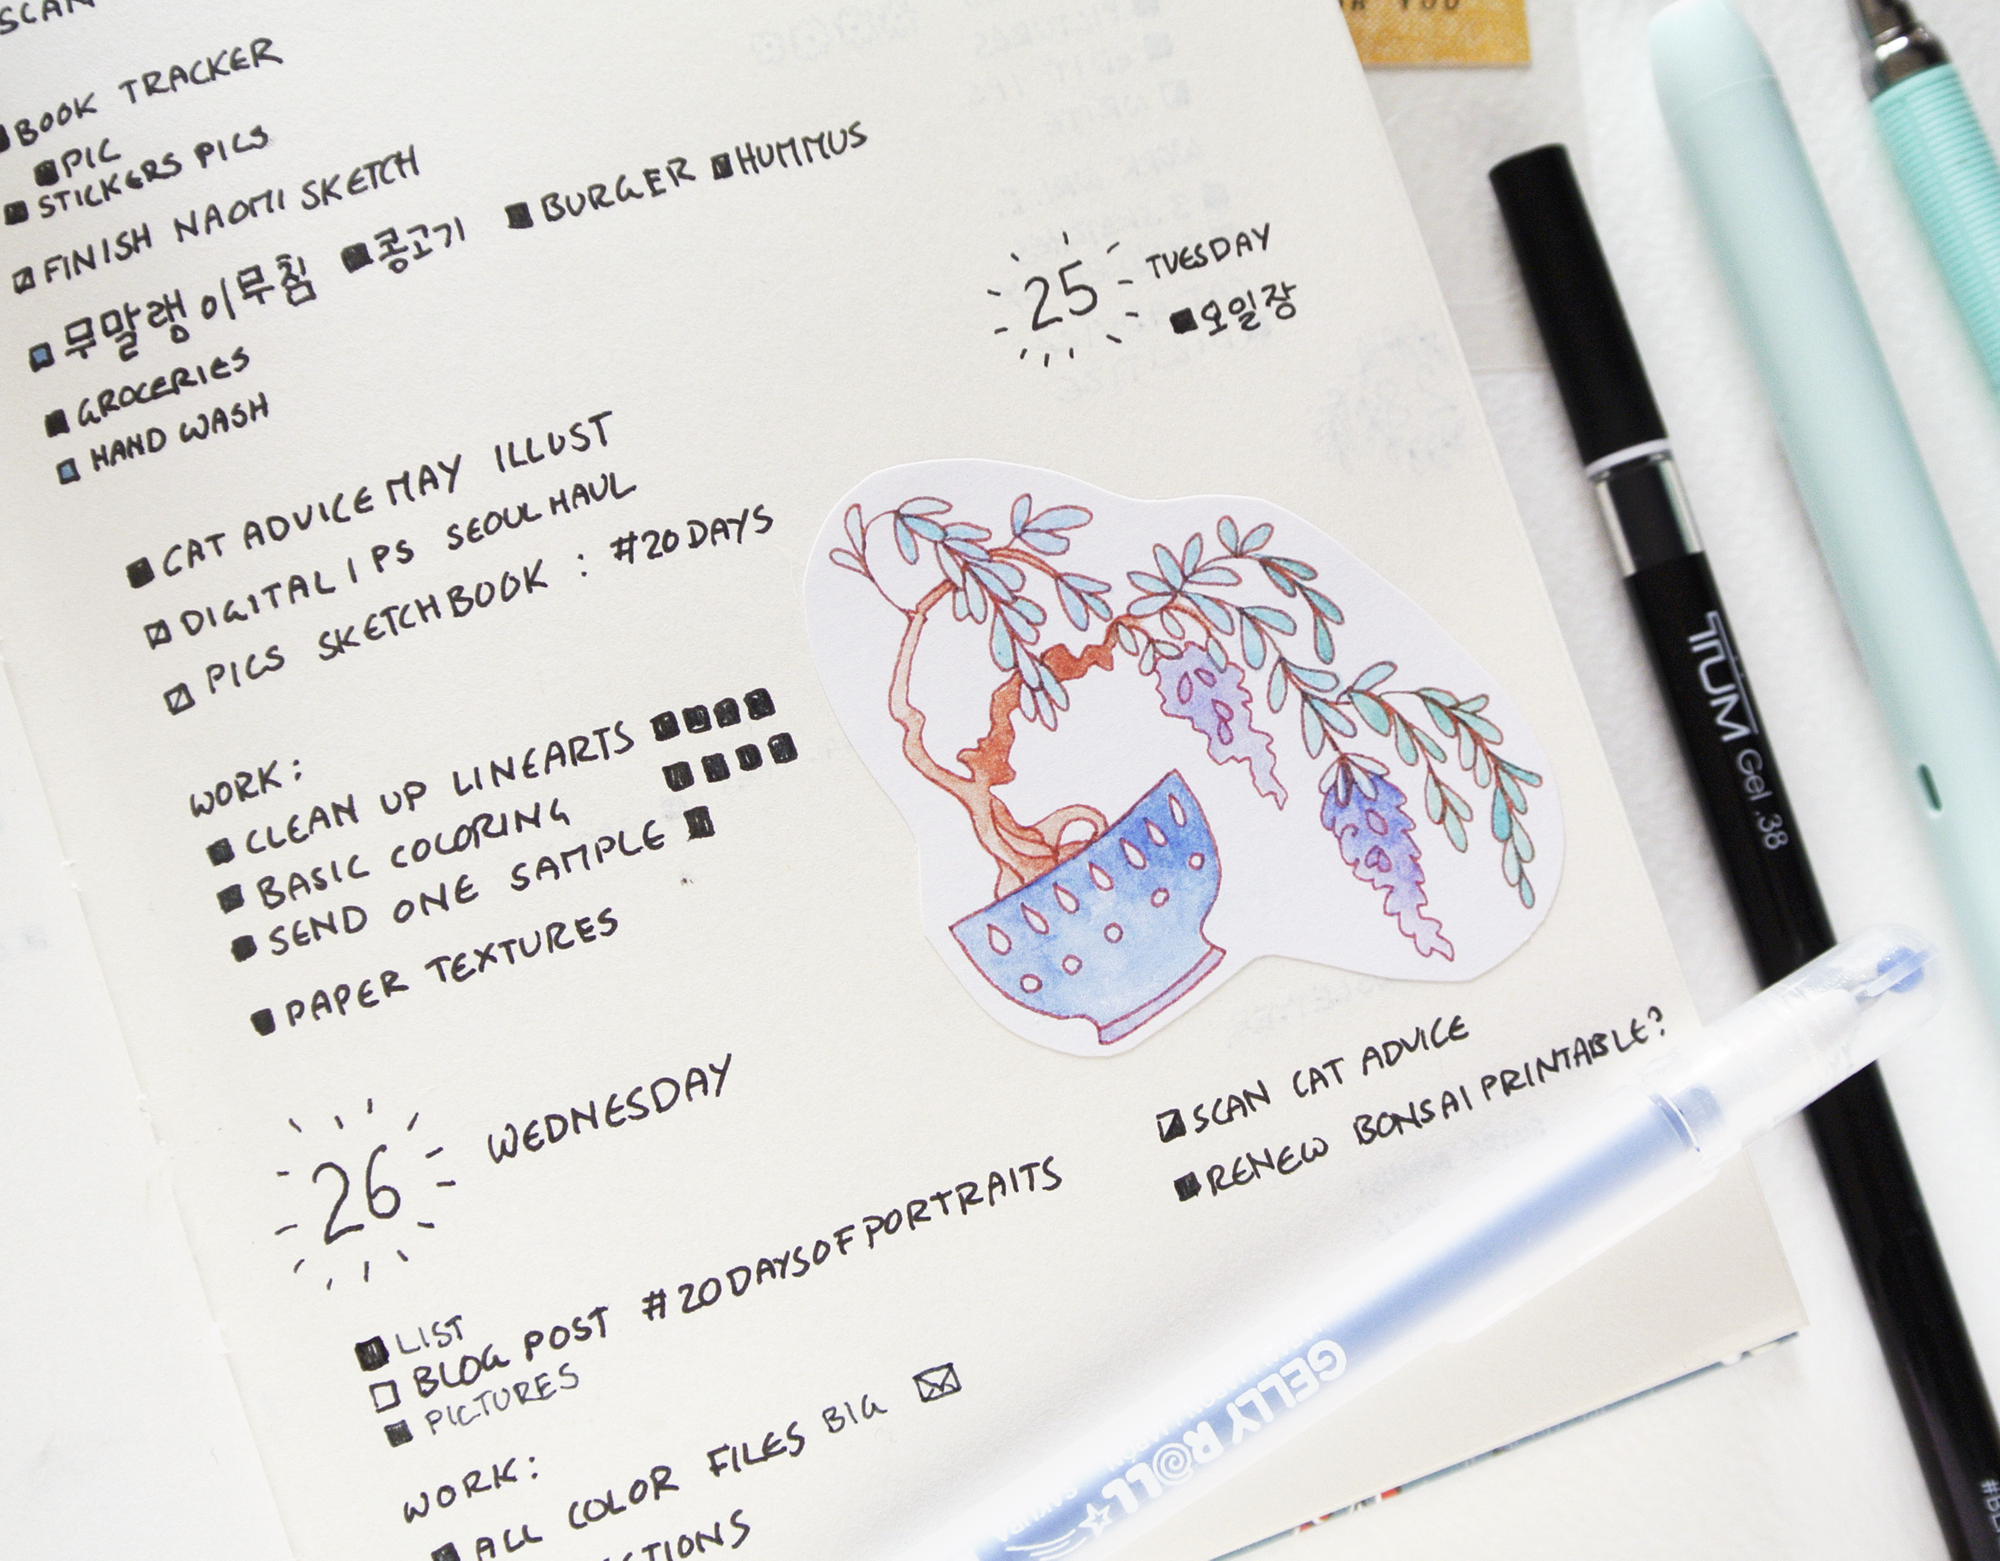 SCAN
BOOK TRACKER
PIC
STICKERS PICS
FINISH NAOMI SKETCH
무말랭이무침 콩고기 BURGER HUMMUS
GROCERIES
HAND WASH
25 TUESDAY
오일장
CAT ADVICE MAY ILLUST
DIGITAL IPS SEOUL HAUL
PICS SKETCHBOOK : #20DAYS
WORK:
CLEAN UP LINEARTS
BASIC COLORING
SEND ONE SAMPLE
PAPER TEXTURES
26 WEDNESDAY
SCAN CAT ADVICE
RENEW BONSAI PRINTABLE?
LIST
BLOG POST #20DAYSOFPORTRAITS
PICTURES
WORK:
ALL COLOR FILES BIG
YOU
TUM Gel .38
GELLY ROLL
SAKURA